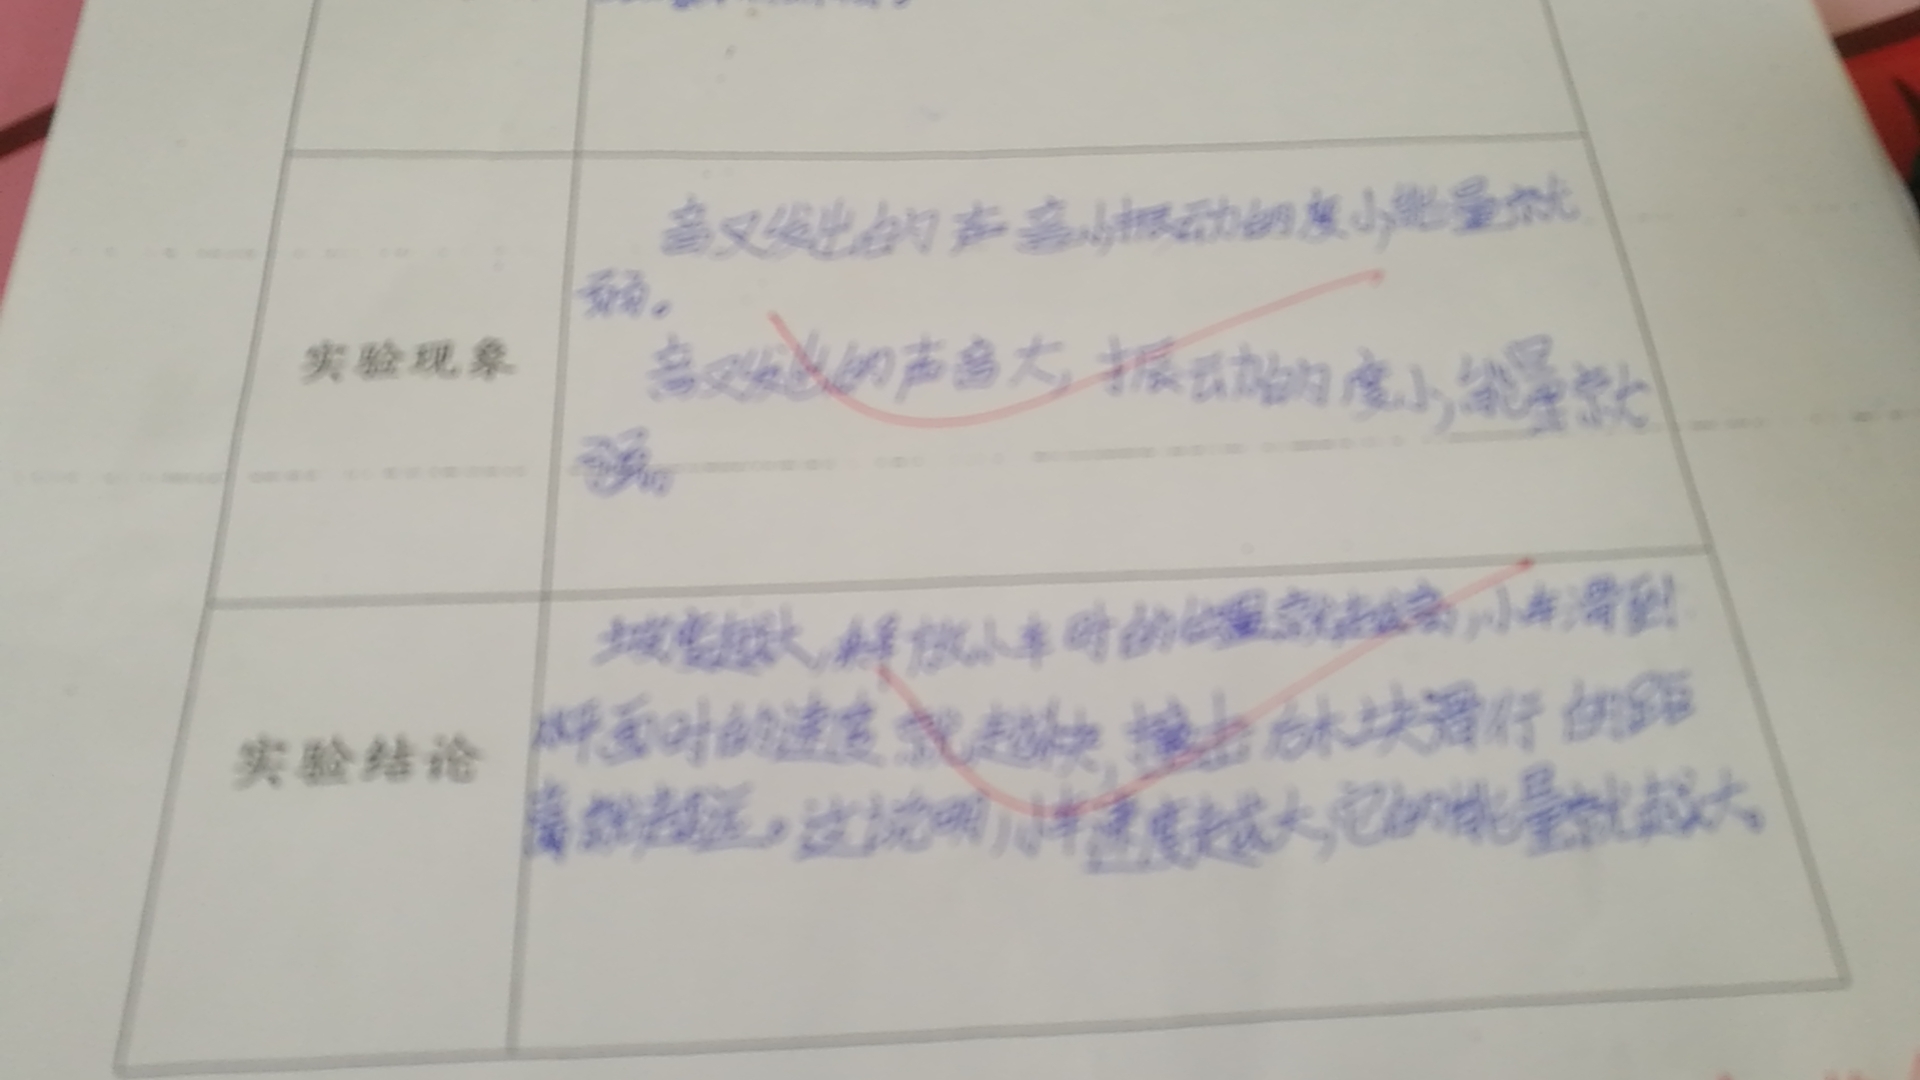 音叉发出的声音小振动的度小,能量就
弱。
实验现象
音叉发出的声音大,振动的度小,能量就
强。
坡度越大,释放小车时的位置就越高,小车滑到
水平面时的速度就越快,撞击后木块滑行的距
实验结论
离就越远。这说明小车速度越大,它的能量就越大。